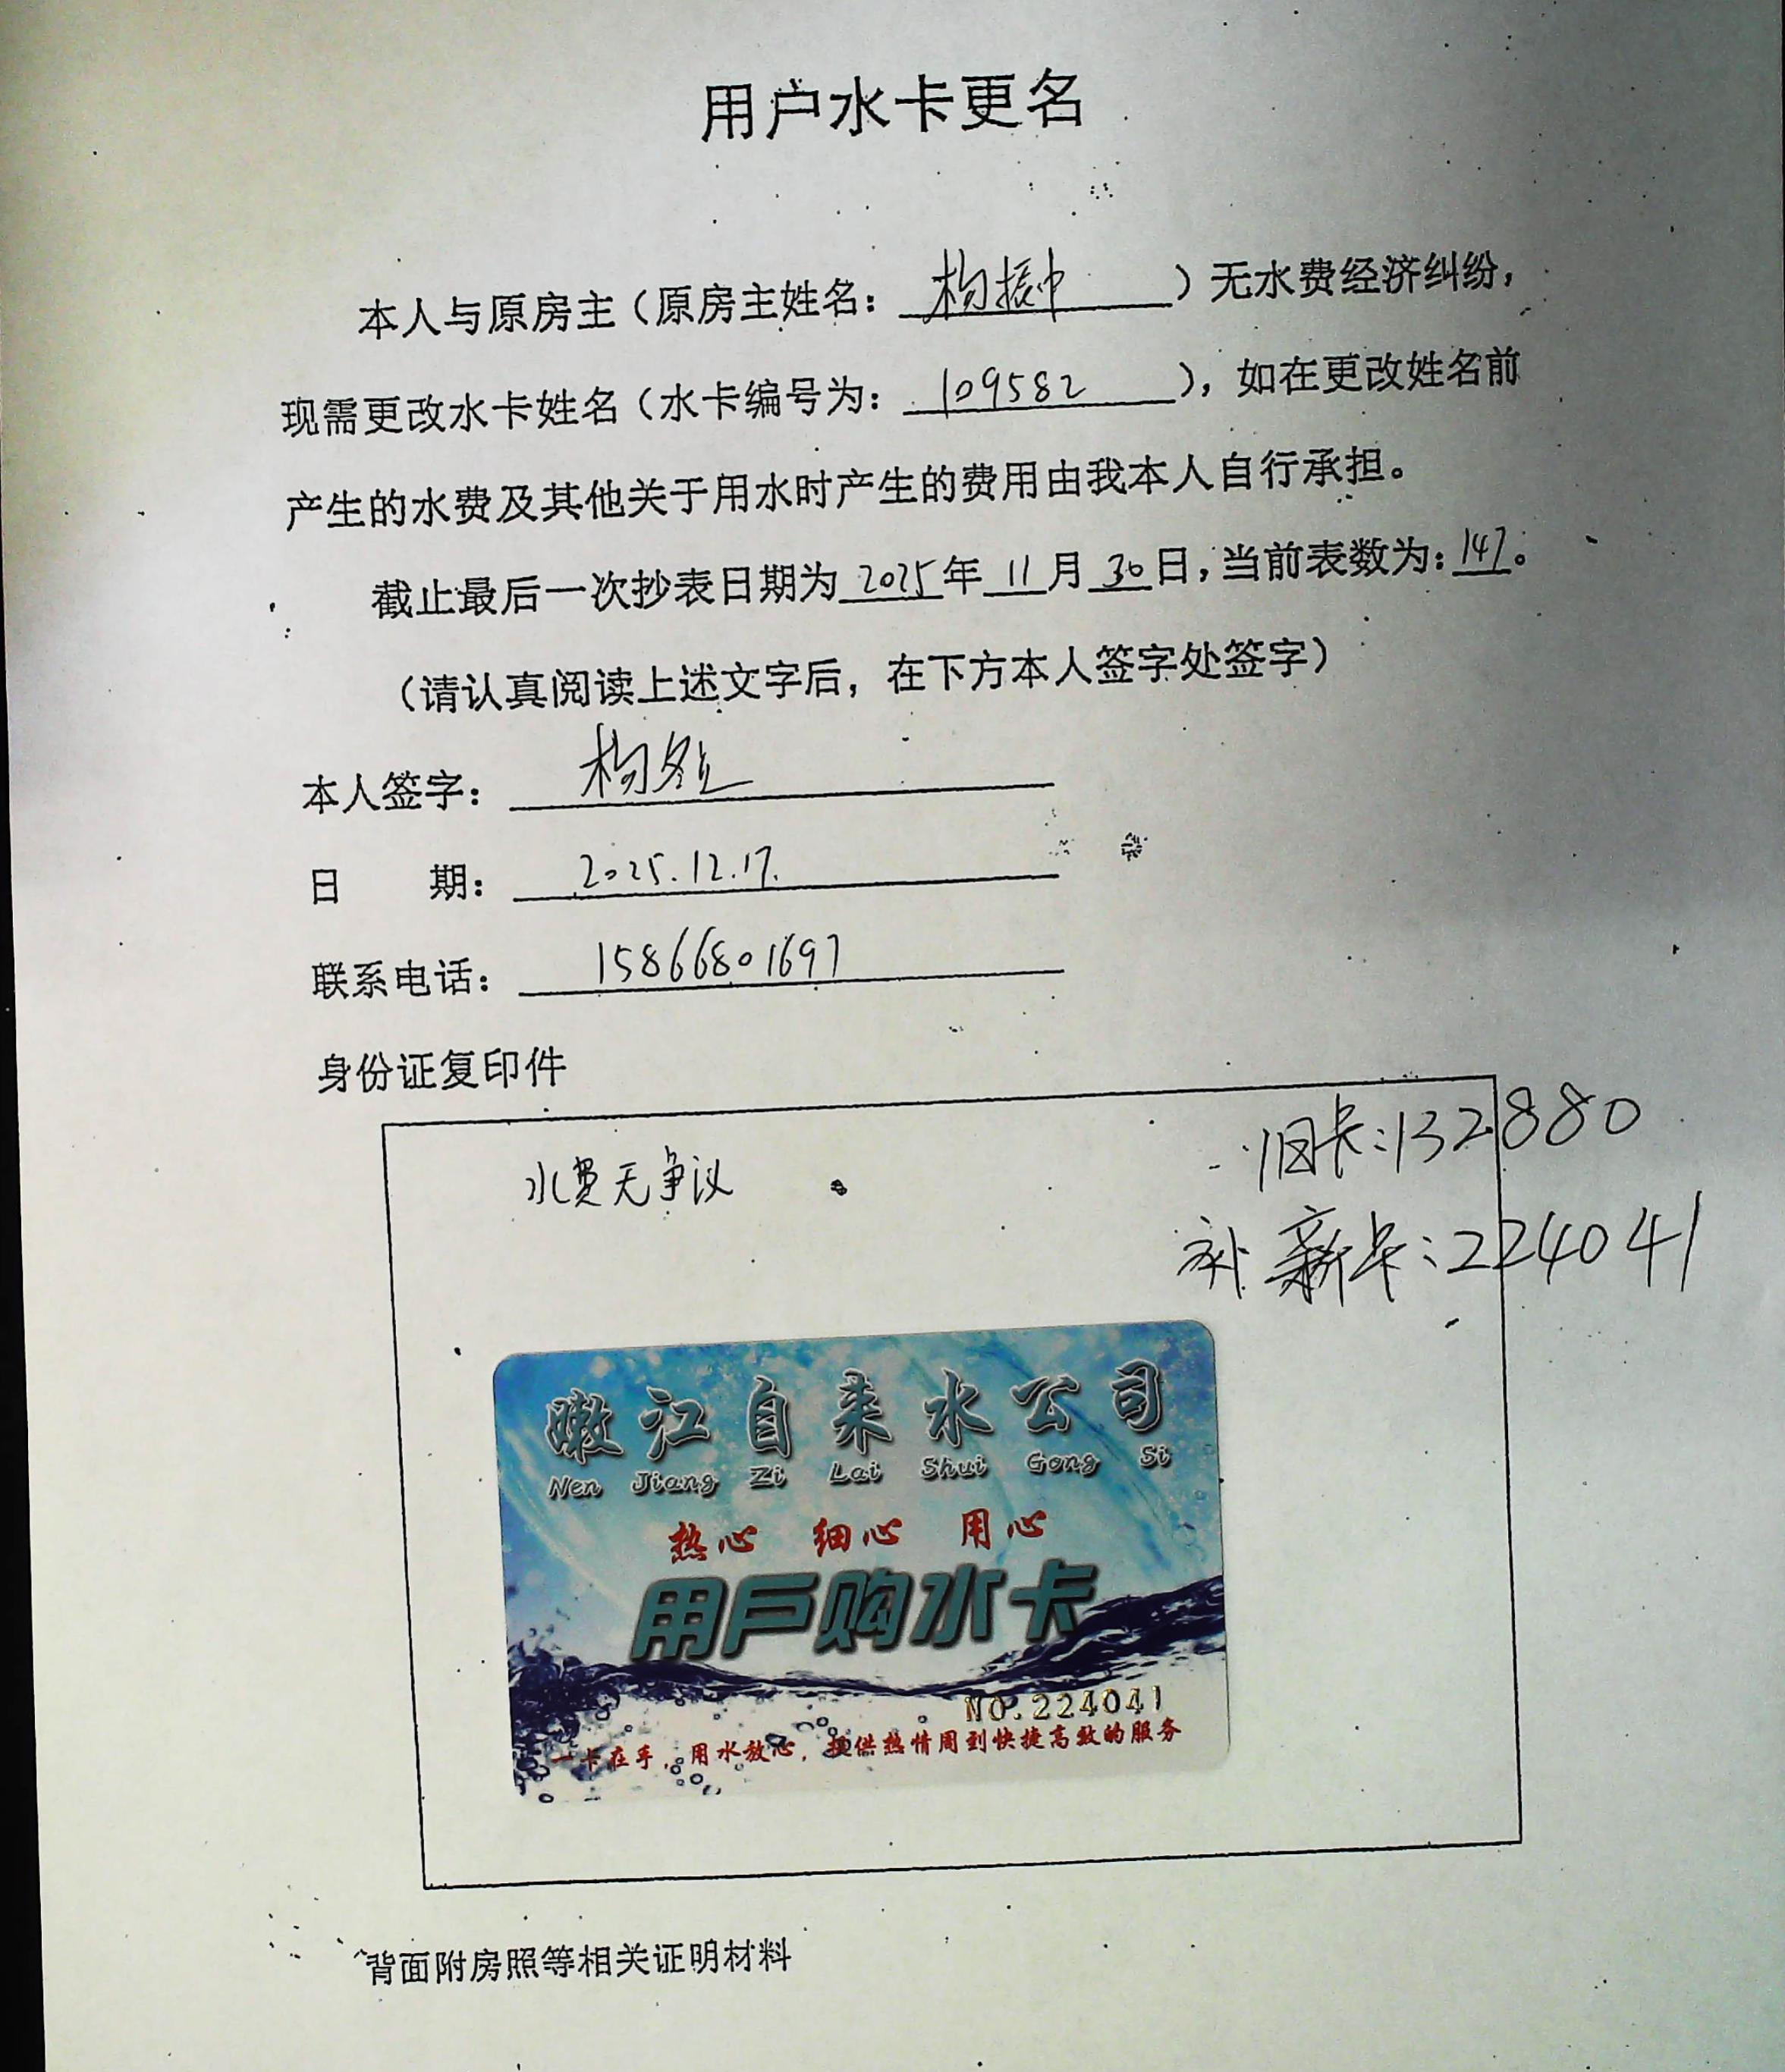 用户水卡更名
本人与原房主（原房主姓名：杨振中）无水费经济纠纷，
现需更改水卡姓名（水卡编号为：109582），如在更改姓名前
产生的水费及其他关于用水时产生的费用由我本人自行承担。
截止最后一次抄表日期为2025年11月30日，当前表数为：147。
（请认真阅读上述文字后，在下方本人签字处签字）
本人签字：杨
日　　期：2025.12.17.
联系电话：15866801697
身份证复印件
旧卡：132880
水费无争议
补新卡：224041
嫩江自来水公司
Nen Jiang Zi Lai Shui Gong Si
热心 细心 用心
用户购水卡
NO.224041
一卡在手，用水放心，提供热情周到快捷高效的服务
背面附房照等相关证明材料